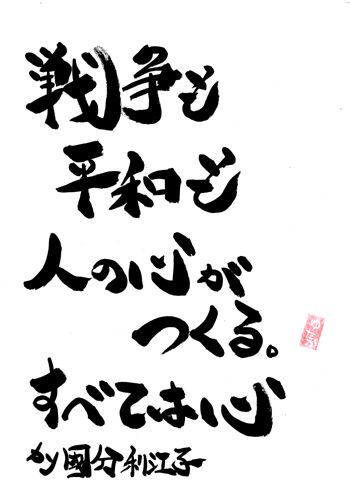 戦争も
平和も
人の心が
つくる。
すべては心
カソ國分利江子
ゆたか